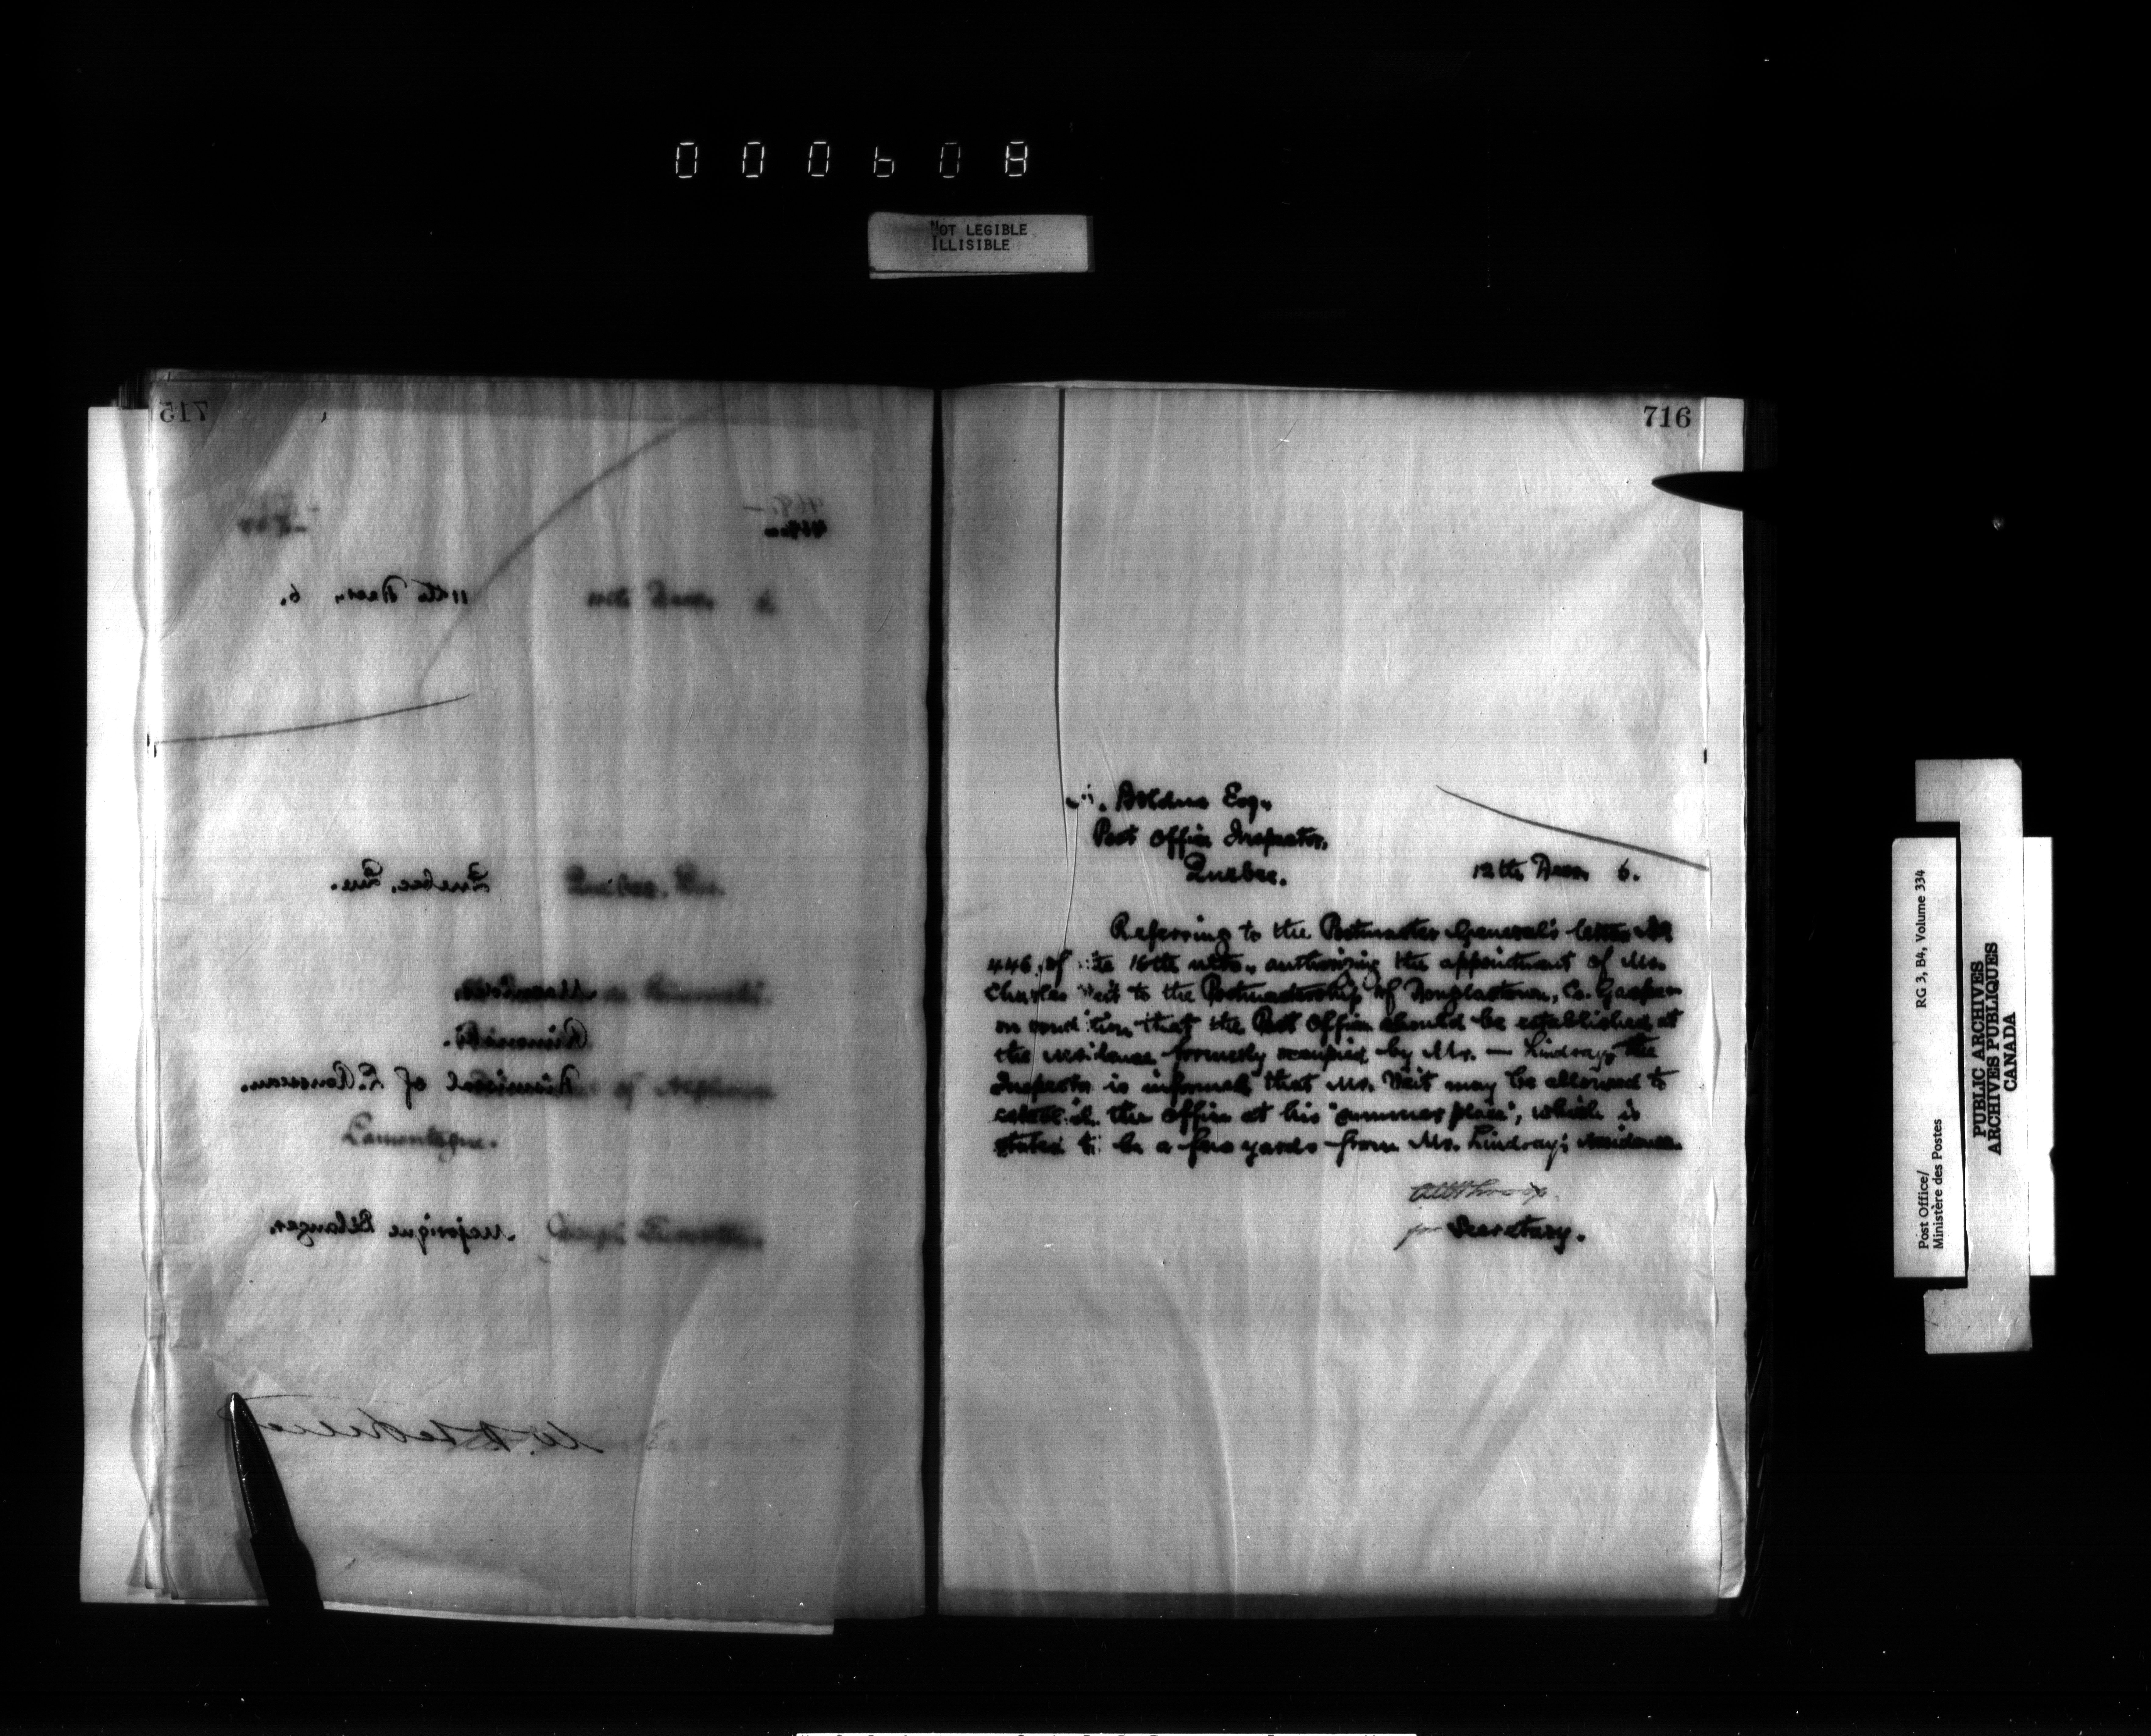 000608
NOT LEGIBLE
ILLISIBLE
715
468.—
11th Decr, 6.
Quebec, Que.
Rimouski.
Dismissal of E. Rousseau.
Lamontagne.
Majorique Bélanger.
716
Bolduc Esq.,
Post Office Inspector,
Quebec.
12th Decr. 6.
Referring to the Postmaster General's letter No
446 of the 16th ulto., authorizing the appointment of Mr.
Charles Veit to the Postmastership of Douglastown, Co. Gaspe
on condition that the Post Office should be established at
the residence formerly occupied by Mr. — Lindsay, the
Inspector is informed that Mr. Veit may be allowed to
establish the office at his "summer place", which is
stated to be a few yards from Mr. Lindsay's residence.
for Secretary.
Post Office/
Ministère des Postes
RG 3, B4, Volume 334
PUBLIC ARCHIVES
ARCHIVES PUBLIQUES
CANADA